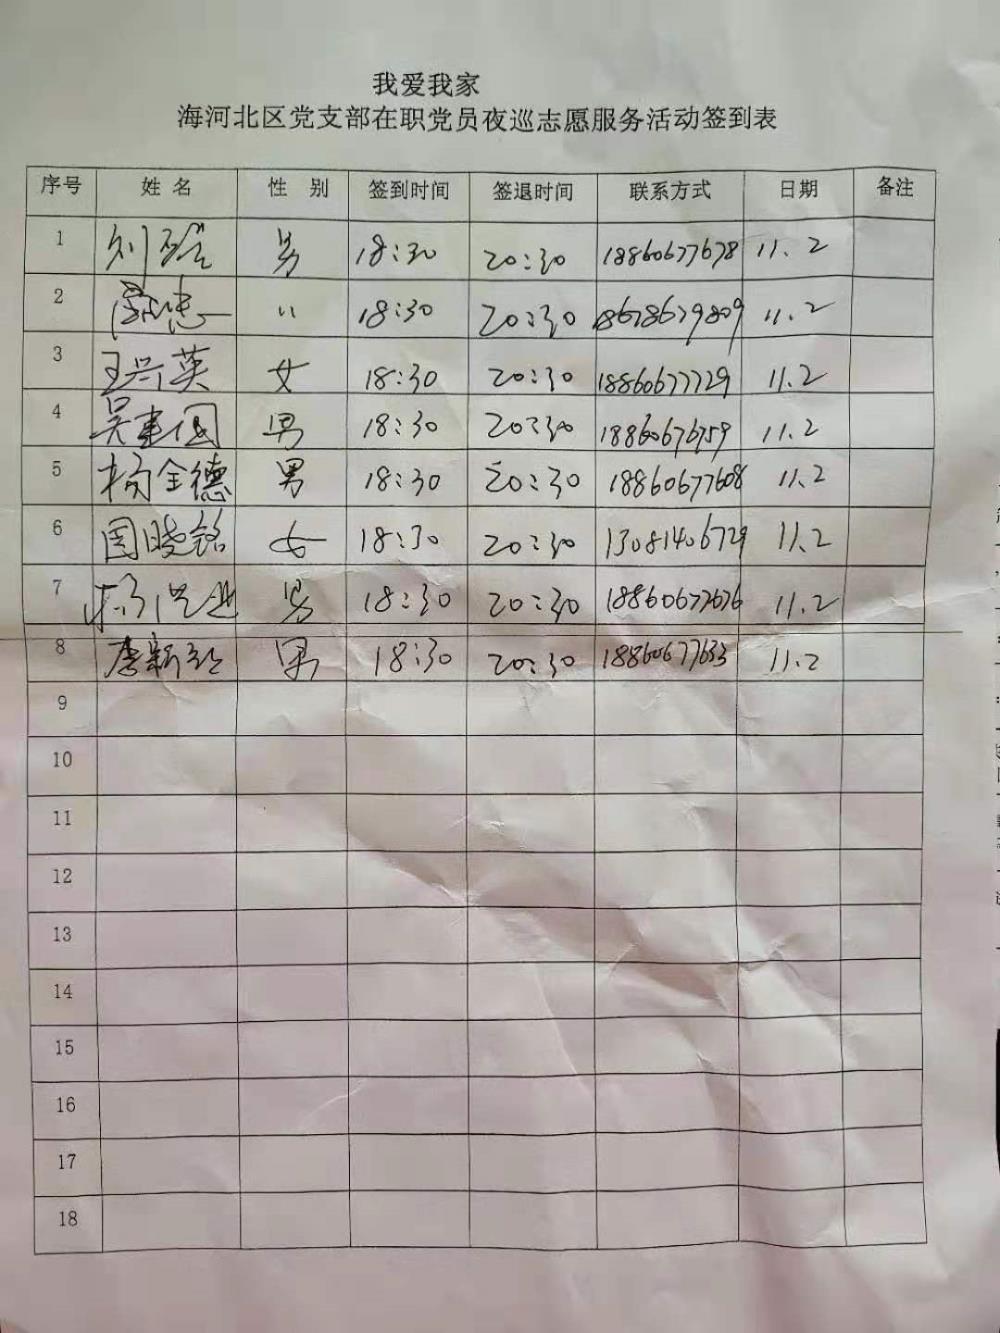 我爱我家
海河北区党支部在职党员夜巡志愿服务活动签到表
序号 姓名 性别 签到时间 签退时间 联系方式 日期 备注
1 刘 男 18:30 20:30 18860677678 11.2
2 〃 18:30 20:30 18678679809 11.2
3 王兴英 女 18:30 20:30 18860677729 11.2
4 吴建国 男 18:30 20:30 18860676759 11.2
5 杨全德 男 18:30 20:30 18860677608 11.2
6 周晓铭 女 18:30 20:30 13081406729 11.2
7 男 18:30 20:30 18860677676 11.2
8 李新 男 18:30 20:30 18860677633 11.2
9
10
11
12
13
14
15
16
17
18